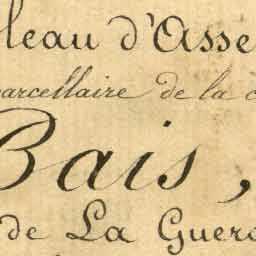 leau d'Asse
arcellaire de la c
Bais,
de La Guerc